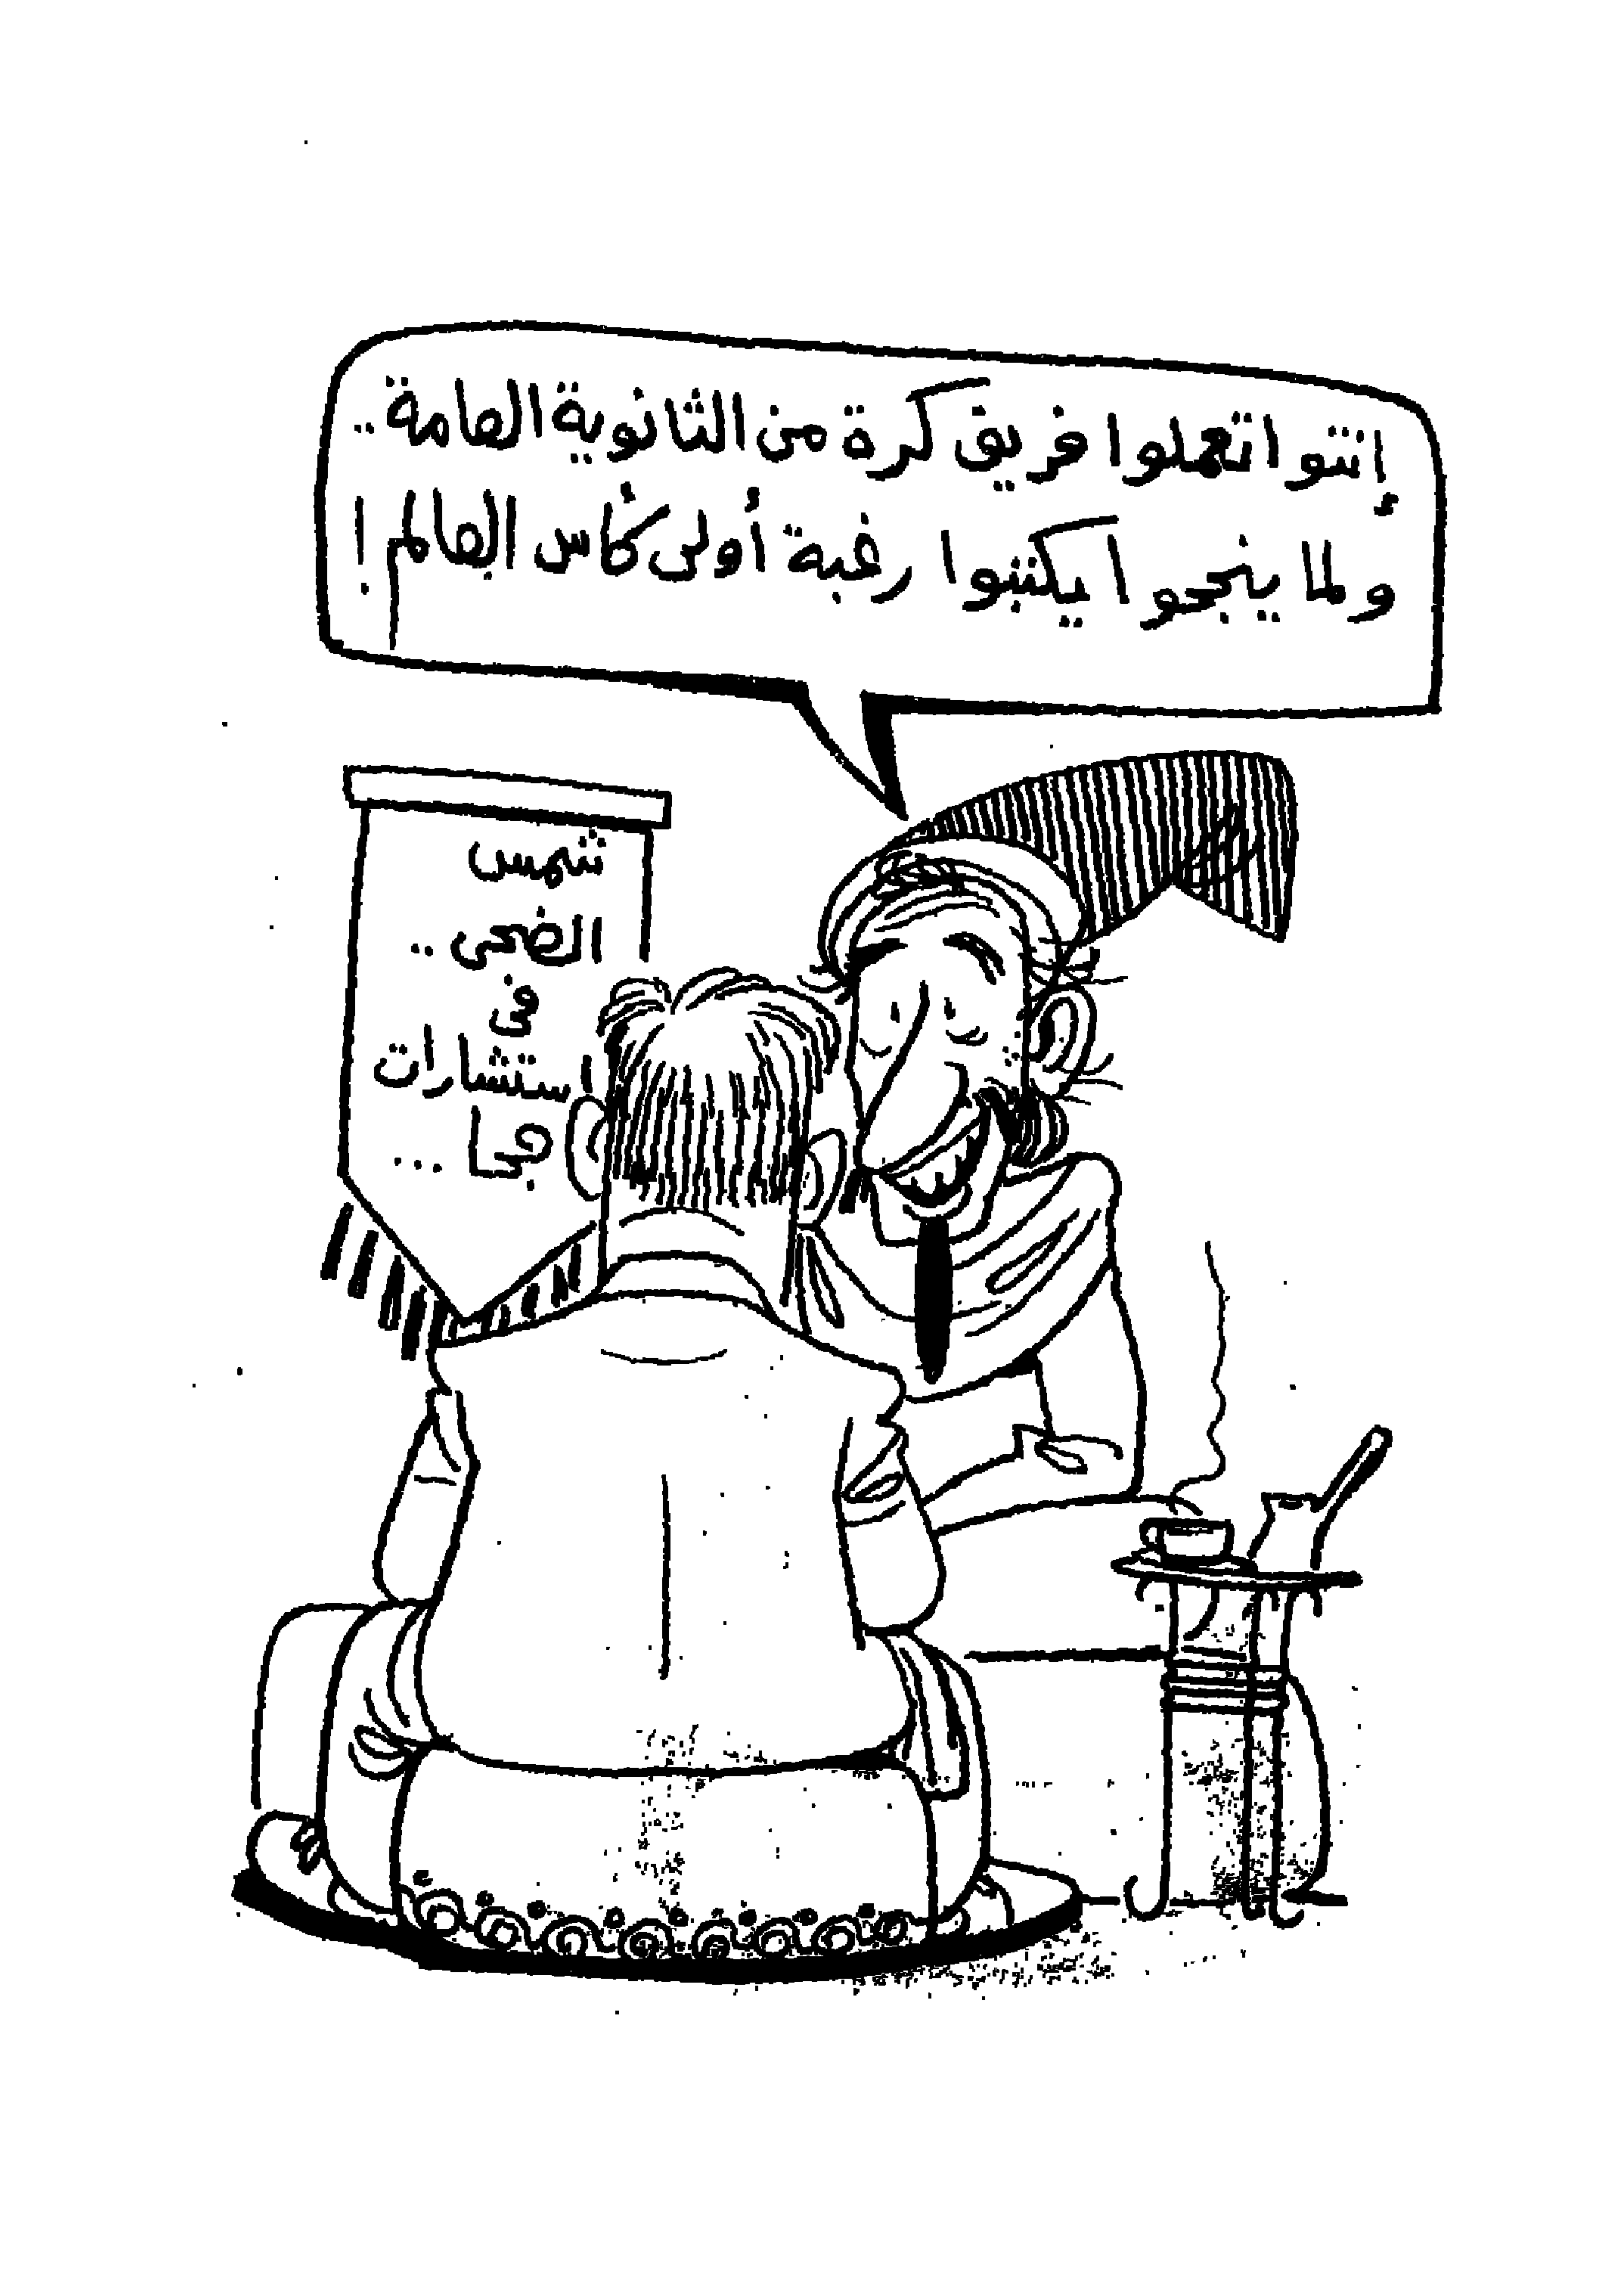 إنتوا تعملوا فريق كرة من الثانوية العامة ..
ولما ينجحوا يكتبوا رغبة أولى كأس العالم !
شمس
الضحى ..
فى
استشارات
جحا ...